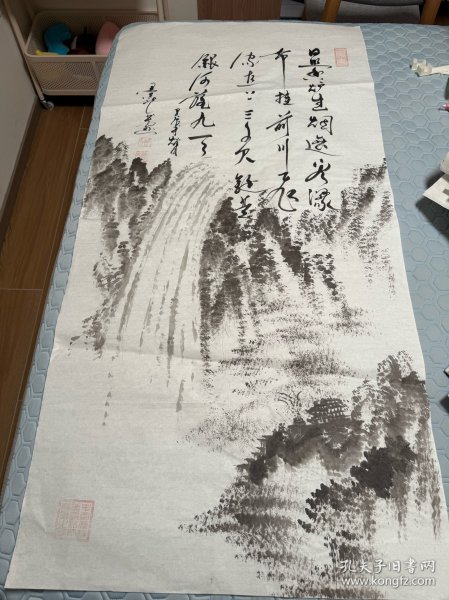 日照香炉生烟遥看瀑
布挂前川飞
流直下三千尺疑是
銀河落九天
孔夫子旧书网
www.kongfz.com